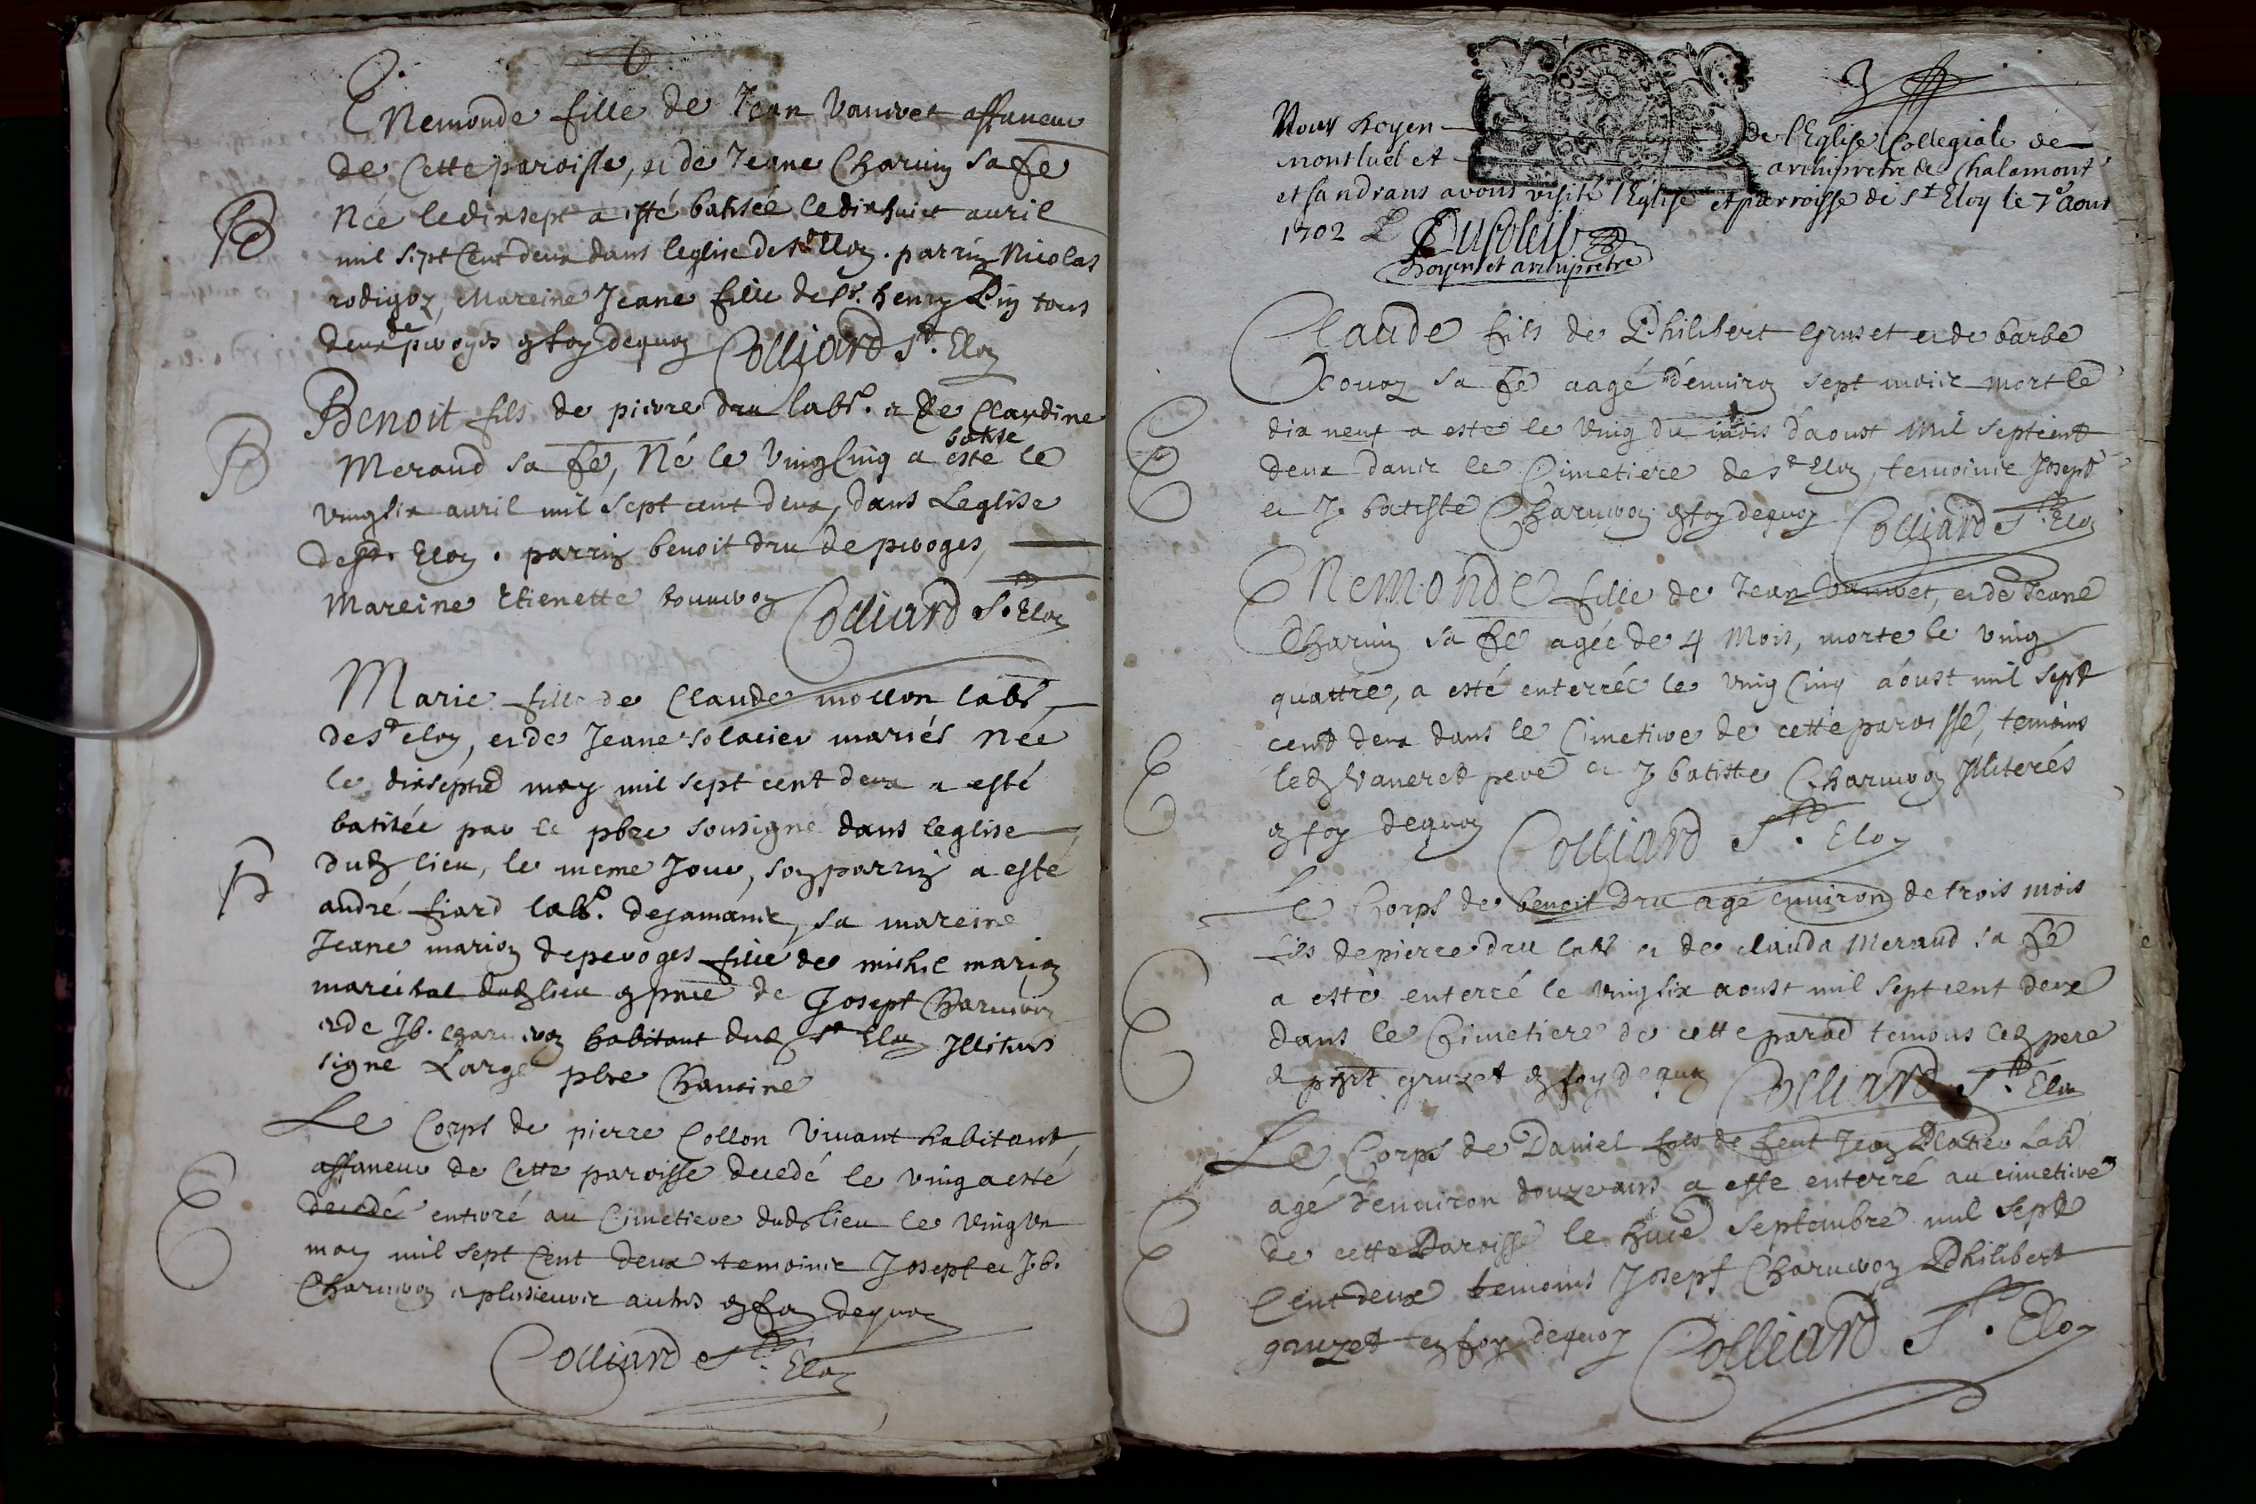 Enemonde fille de Jean Vanivet affaneur
de Cette paroisse, et de Jeane Charvin sa fe
Née le dixsept a esté batisée le dixhuict auril
mil sept Cent deux dans leglise de st Eloy. parrin Nicolas
rodigoz, Mareine Jeane fille de sr. henry tous
deux de peroges en foy dequoy Colliard St. Eloy
Benoit fils de pierre dru labr. et de Claudine
batisé
Meraud sa fe, Né le Vingt Cinq a esté le
vingsix auril mil sept cent deux, dans Leglise
de st. Eloy. parrin benoit dru de peroges,
Mareine Etienette Colliard St. Eloy
Marie fille de Claude mollon labr
de st eloy, et de Jeane solacier mariés Née
le dixsepted may mil sept cent deux a esté
batisée par le pbre sousigné dans leglise
dud lieu, le meme Jour, son parrin a esté
andré fiard labr. de samanse, sa mareine
Jeane marion de peroges fille de michel marion
maréchal dud lieu en pnce de Josept Charuivon
et de Jb. Charuivon habitant dud st Eloy Illiterés
signé Large pbre Chanoine
Le Corps de pierre Collon Viuant habitant
affaneur de Cette paroisse decedé le vingt a esté
decedé enterré au Cimetiere dud lieu le Vingt Vn
may mil sept Cent deux temoins Josept et J. b.
Charuivon et plusieurs autres en foy dequoy
Colliard St. Eloy
Nous doyen de l'Eglise Collegiale de
montluel et archipretre de Chalamont
et sandrans avons visité l'Eglise et parroisse de st Eloy le 7e Aout
1702 Dusoleil
doyen et archipretre
Claude fils de Philibert gruset et de barbe
sa fe aagé d'enuiron sept mois mort le
dix neuf a esté le Ving du mois d'aoust Mil septcent
deux dans le Cimetiere de st Eloy, temoins Josept
et J. batiste Charuivon en foy dequoy Colliard St. Eloy
Enemonde fille de Jean Vanivet, et de Jeane
Charvin sa fe agée de 4 Mois, morte le ving
quattre, a esté enterrée le ving Cinq aoust mil sept
cent deux dans le Cimetiere de cette paroisse, temoins
led Vaneret pere et J. batiste Charuivon Illiterés
en foy dequoy Colliard St. Eloy
Le Corps de benoit Dru agé enuiron de trois mois
fils de pierre dru labr et de clauda Meraud sa fe
a esté enterré le vingsix aoust mil sept cent deux
dans le Cimetiere de cette temoins led pere
et gruzet en foy dequoy Colliard St. Eloy
Le Corps de Daniel fils de feut Jean Platier Labr
agé denuiron douze ans a este enterré au cimetiere
de cette Paroisse le huict Septembre mil sept
Cent deux temoins Josept Charuivon Philibert
gruzet en foy dequoy Colliard St. Eloy